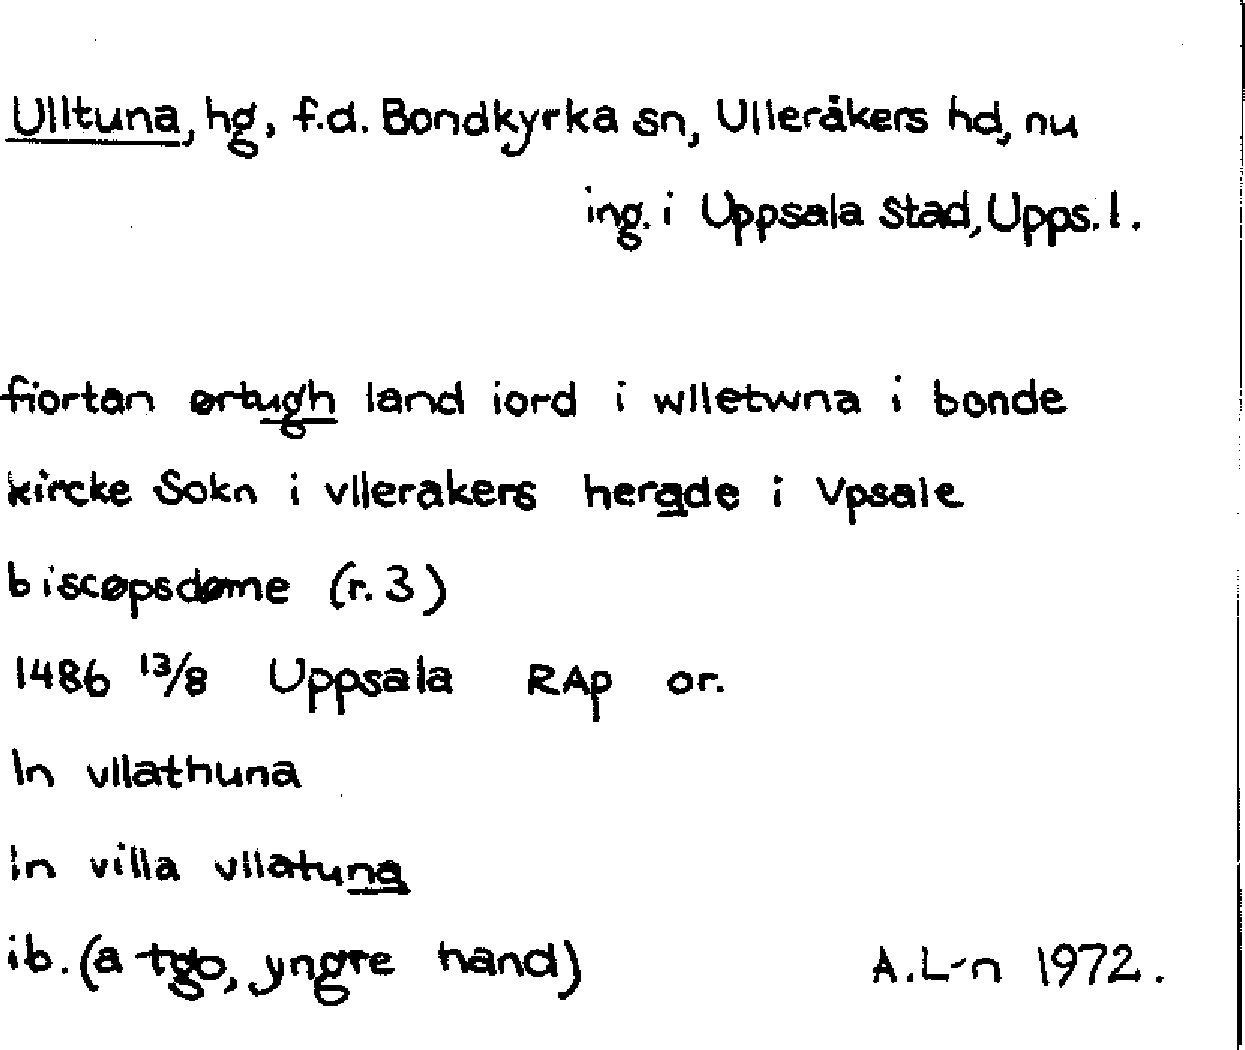 Ulltuna, hg, f.d. Bondkyrka sn, Ulleråkers hd, nu
ing. i Uppsala stad, Upps. l.
fiortan ørtugh land iord i wlletwna i bonde
kircke Sokn i vllerakers herade i Vpsale
biscøpsdøme (r. 3)
1486 13/8 Uppsala RAp or.
In vllathuna
In villa vllatuna
ib. (a tgo, yngre hand) A.L-n 1972.